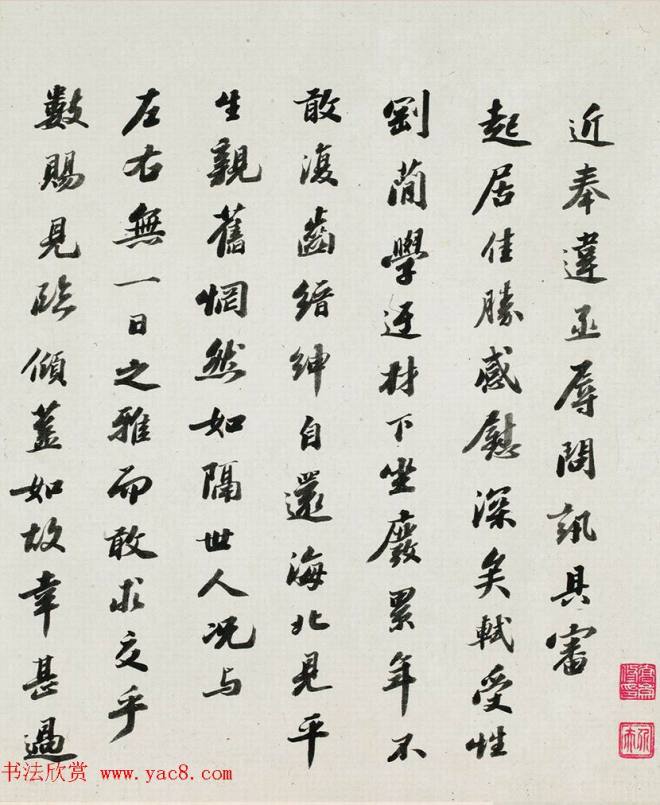 近奉違亟辱問訊具審
起居佳勝感慰深矣軾受性
剛簡學迂材下坐廢累年不
敢復齒縉紳自還海北見平
生親舊惘然如隔世人况与
左右無一日之雅而敢求交乎
數賜見臨傾蓋如故幸甚過
书法欣赏 www.yac8.com